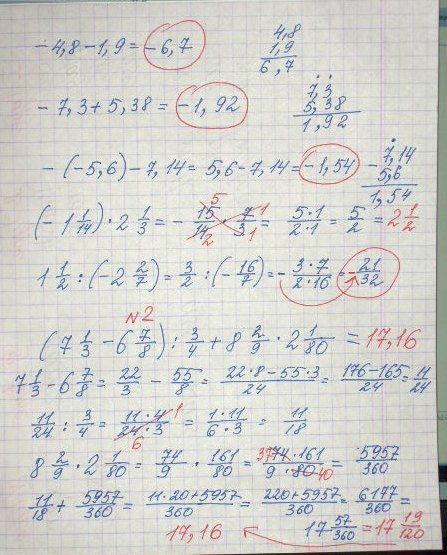 - 4,8 - 1,9 = - 6,7
4,8
1,9
6,7
- 7,3 + 5,38 = - 1,92
7,3
5,38
1,92
- (-5,6) - 7,14 = 5,6 - 7,14 = - 1,54
- 7,14
5,6
1,54
(- 1 1/14) · 2 1/3 = - 15/14 · 7/3 = 5·1/2·1 = 5/2 = 2 1/2
5 1 2 1
1 1/2 : (- 2 2/7) = 3/2 : (- 16/7) = - 3·7/2·16 = - 21/32
N2
(7 1/3 - 6 7/8) : 3/4 + 8 2/9 · 2 1/80 = 17,16
7 1/3 - 6 7/8 = 22/3 - 55/8 = 22·8 - 55·3/24 = 176 - 165/24 = 11/24
11/24 : 3/4 = 11·4/24·3 = 1·11/6·3 = 11/18
1 6
8 2/9 · 2 1/80 = 74/9 · 161/80 = 74·161/9·80 = 5957/360
37 40
11/18 + 5957/360 = 11·20+5957/360 = 220+5957/360 = 6177/360 =
17,16 17 57/360 = 17 19/120